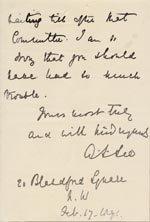 waiting till after that
Committee. I am so
sorry that you should
have had so much
trouble.
Yours most truly
and with kind regards
20 Blandford Square
N.W
Feb. 17.